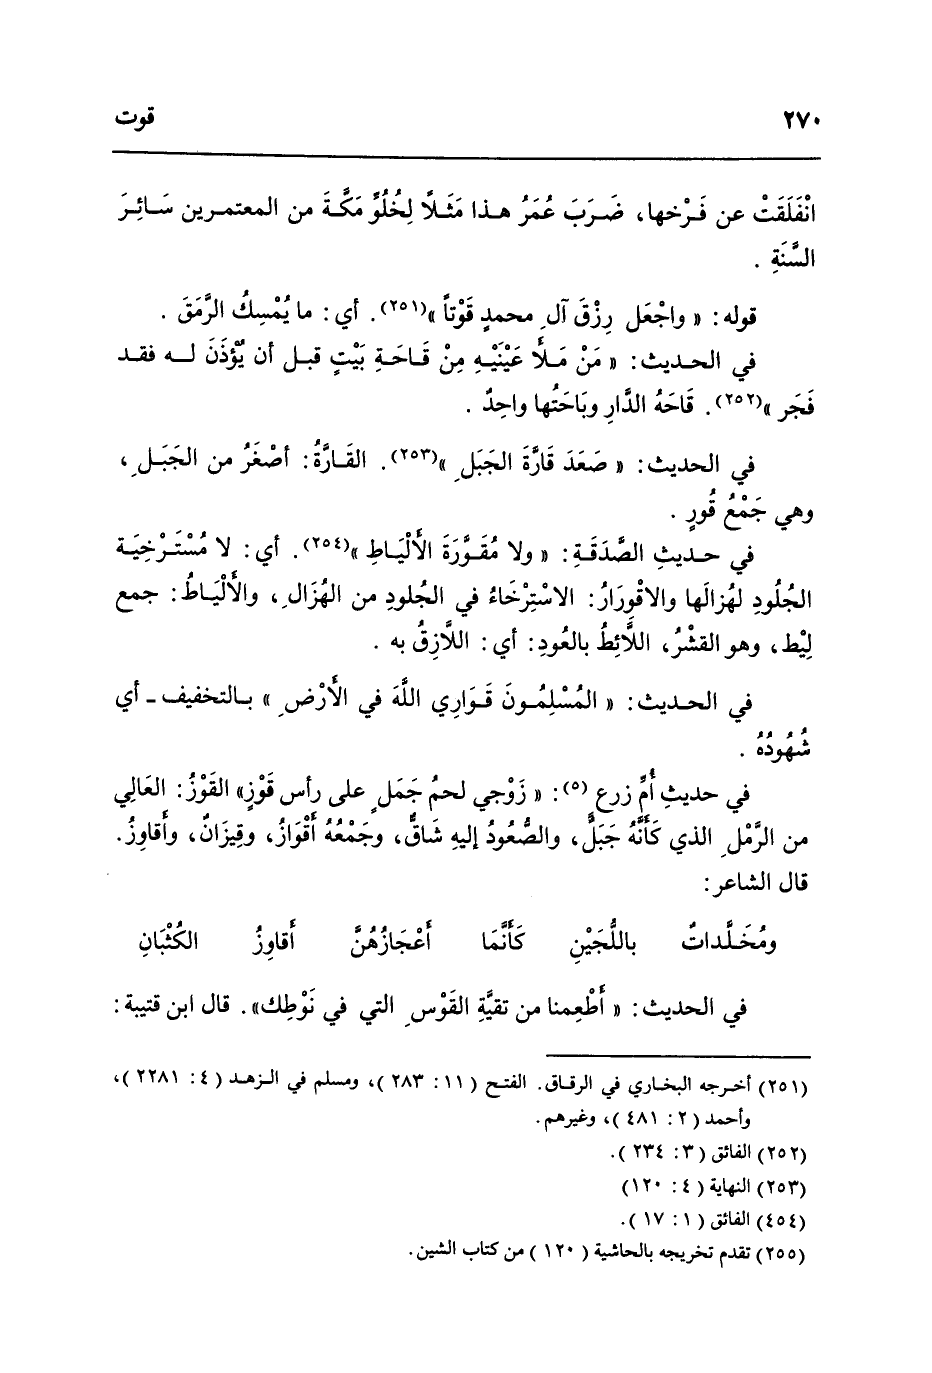 ٢٧٠ قوت
انْفَلَقَتْ عن فَرْخها، ضَرَبَ عُمَرُ هذا مَثَلاً لِخُلُوِّ مَكَّةَ من المعتمرين سَائِرَ
السَّنَةِ .
قوله: « واجْعَل رِزْقَ آلِ محمدٍ قَوْتاً »(٢٥١). أي: ما يُمْسِكُ الرَّمَقَ .
في الحديث: « مَنْ مَلأَ عَيْنَيْهِ مِنْ قَاحَةِ بَيْتٍ قبل أن يُؤْذَنَ له فقد
فَجَر »(٢٥٢). قَاحَهُ الدَّارِ وبَاحَتُها واحِدٌ .
في الحديث: « صَعَدَ قَارَّةَ الجَبَلِ »(٢٥٣). القَارَّةُ: أصْغَرُ من الجَبَلِ،
وهي جَمْعُ قُورٍ .
في حديثِ الصَّدَقَةِ: « ولا مُقَوَّرَةَ الأَلْيَاطِ »(٢٥٤). أي: لا مُسْتَرْخِيَة
الجُلُودِ لهُزالَها والاقْوِرَارُ: الاسْتِرْخَاءُ في الجُلودِ من الهُزَالِ، والأَلْيَاطُ: جمع
لِيْط، وهو القشْرُ، اللَّائِطُ بالعُودِ: أي: اللَّازِقُ به .
في الحديث: « المُسْلِمُونَ قَوَارِي اللَّهَ في الأَرْضِ » بالتخفيف - أي
شُهُودُهُ .
في حديثِ أُمِّ زرع (٥): « زَوْجي لحمُ جَمَلٍ على رأس قَوْزٍ» القَوْزُ: العَالِي
من الرَّمْلِ الذي كَأَنَّهُ جَبَلٌ، والصُّعُودُ إليهِ شَاقٌّ، وجَمْعُهُ أَقْوَازُ، وقِيزَانٌ، وأَقاوِزُ.
قال الشاعر:
ومُخَلَّداتٌ باللُّجَيْنِ كَأَنَّمَا أَعْجَازُهُنَّ أَقاوِزُ الكُثْبَانِ
في الحديث: « أَطْعِمنا من تقيَّةِ القَوْسِ التي في نَوْطِك». قال ابن قتيبة:
(٢٥١) أخرجه البخاري في الرقاق. الفتح ( ١١: ٢٨٣ )، ومسلم في الزهد ( ٤: ٢٢٨١ )،
وأحمد ( ٢: ٤٨١ )، وغيرهم.
(٢٥٢) الفائق ( ٣: ٢٣٤ ).
(٢٥٣) النهاية ( ٤: ١٢٠)
(٤٥٤) الفائق ( ١: ١٧ ).
(٢٥٥) تقدم تخريجه بالحاشية ( ١٢٠ ) من كتاب الشين.